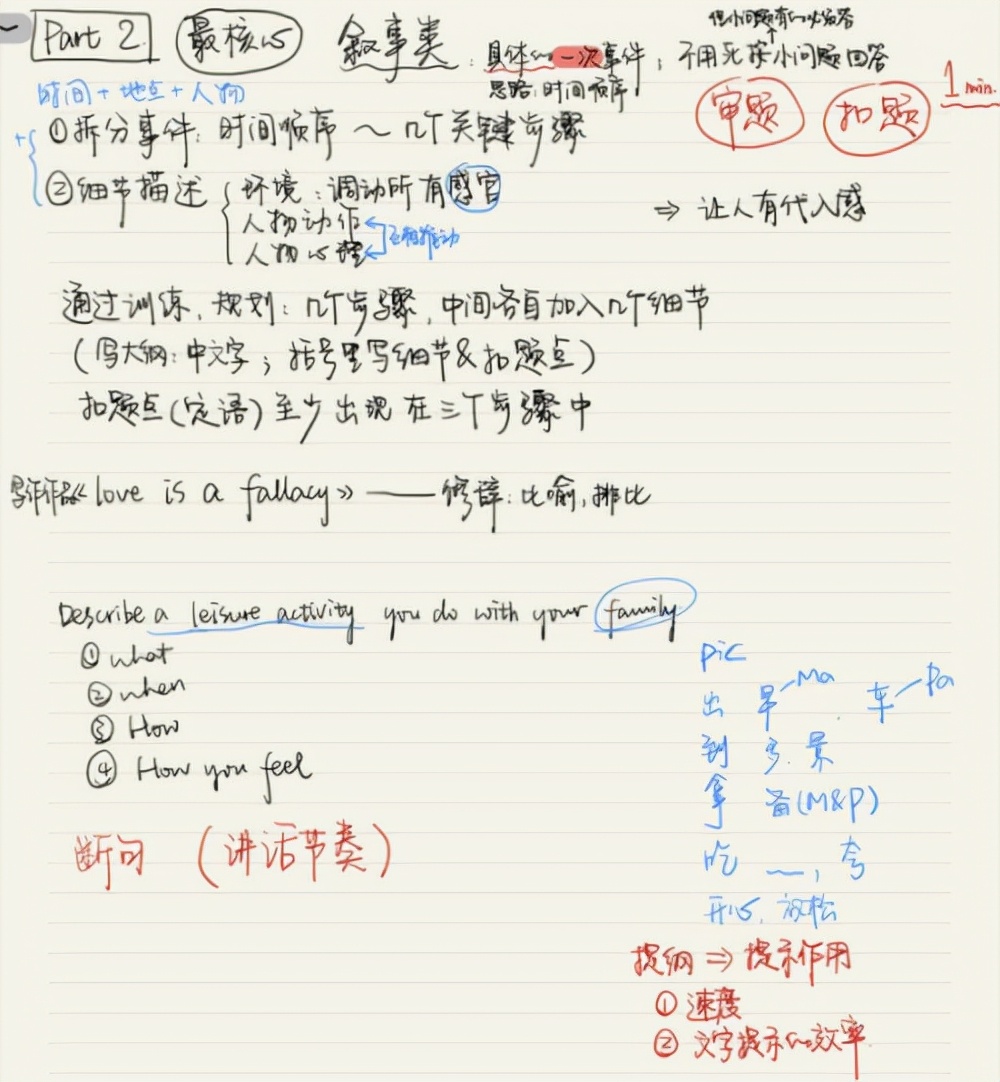 但小问题有的必须答
Part 2. 最核心 叙事类：具体的一次事件；不用死按小问题回答
思路：时间顺序
时间 + 地点 + 人物
审题 扣题 1 min.
+
①拆分事件：时间顺序 ～ 几个关键步骤
②细节描述 环境：调动所有感官
人物动作
人物心理
互相推动
⇒ 让人有代入感
通过训练，规划：几个步骤，中间各自加入几个细节
（写大纲：中文字；括号里写细节&扣题点）
扣题点（定语）至少出现在三个步骤中
写作作品《love is a fallacy》——修辞：比喻，排比
Describe a leisure activity you do with your family
① what
② when
③ How
④ How you feel
断句 （讲话节奏）
pic
出 早 Ma 车 Pa
到 多.景
拿 备(M&P)
吃 ～，夸
开心，放松
提纲 ⇒ 提示作用
① 速度
② 文字提示的效率